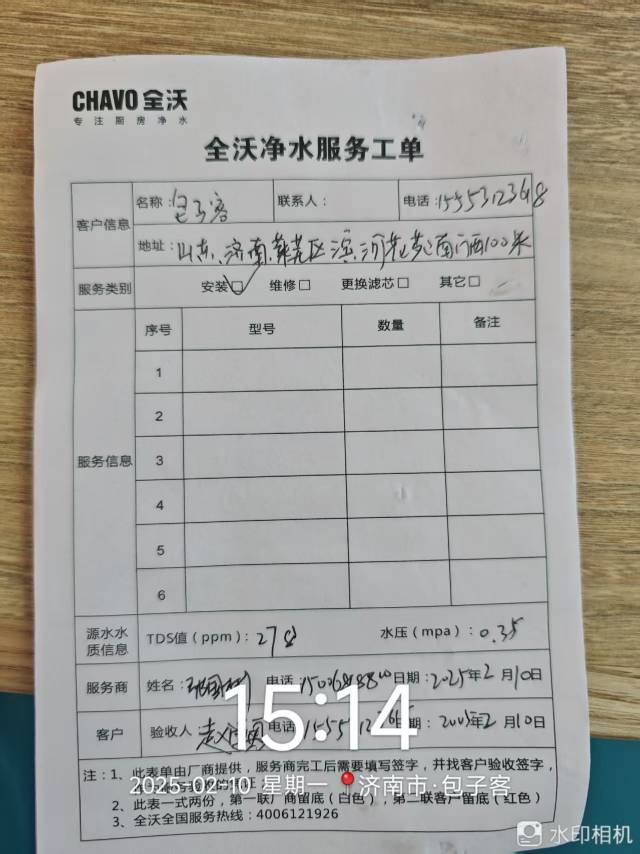 CHAVO 全沃
专注厨房净水
全沃净水服务工单
客户信息
名称：包子客 联系人： 电话：
地址：山东.济南.莱芜区滨河 南门西100米
服务类别 安装☑ 维修□ 更换滤芯□ 其它□
服务信息
序号 型号 数量 备注
1
2
3
4
5
6
源水水质信息 TDS值（ppm）：278 水压（mpa）：0.35
服务商 姓名： 电话： 日期：2025年2月10日
客户 验收人 电话 日期：2005年2月10日
15:14
注：1、此表单由厂商提供，服务商完工后需要填写签字，并找客户验收签字，
2025-02-10 星期一 济南市·包子客
2、此表一式两份，第一联厂商留底（白色），第二联客户留底（红色）
3、全沃全国服务热线：4006121926
水印相机